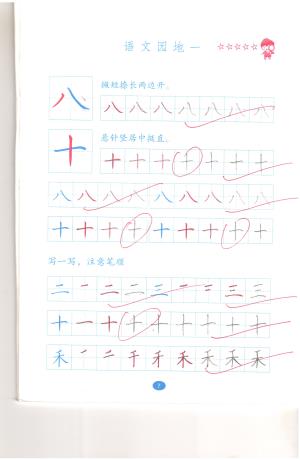 语文园地一
☆☆☆☆☆
八
撇短捺长两边开。
八 八 八 八 八 八 八
十
悬针竖居中挺直。
十 十 十 十 十 十 十
八 八 八 八 八 八 八 八 八 八
十 十 十 十 十 十 十 十 十 十
写一写,注意笔顺
二 一 二 二 三 一 二 三 三
十 一 十 十 十 十 十 十 十
禾 一 二 千 禾 禾 禾 禾 禾
7